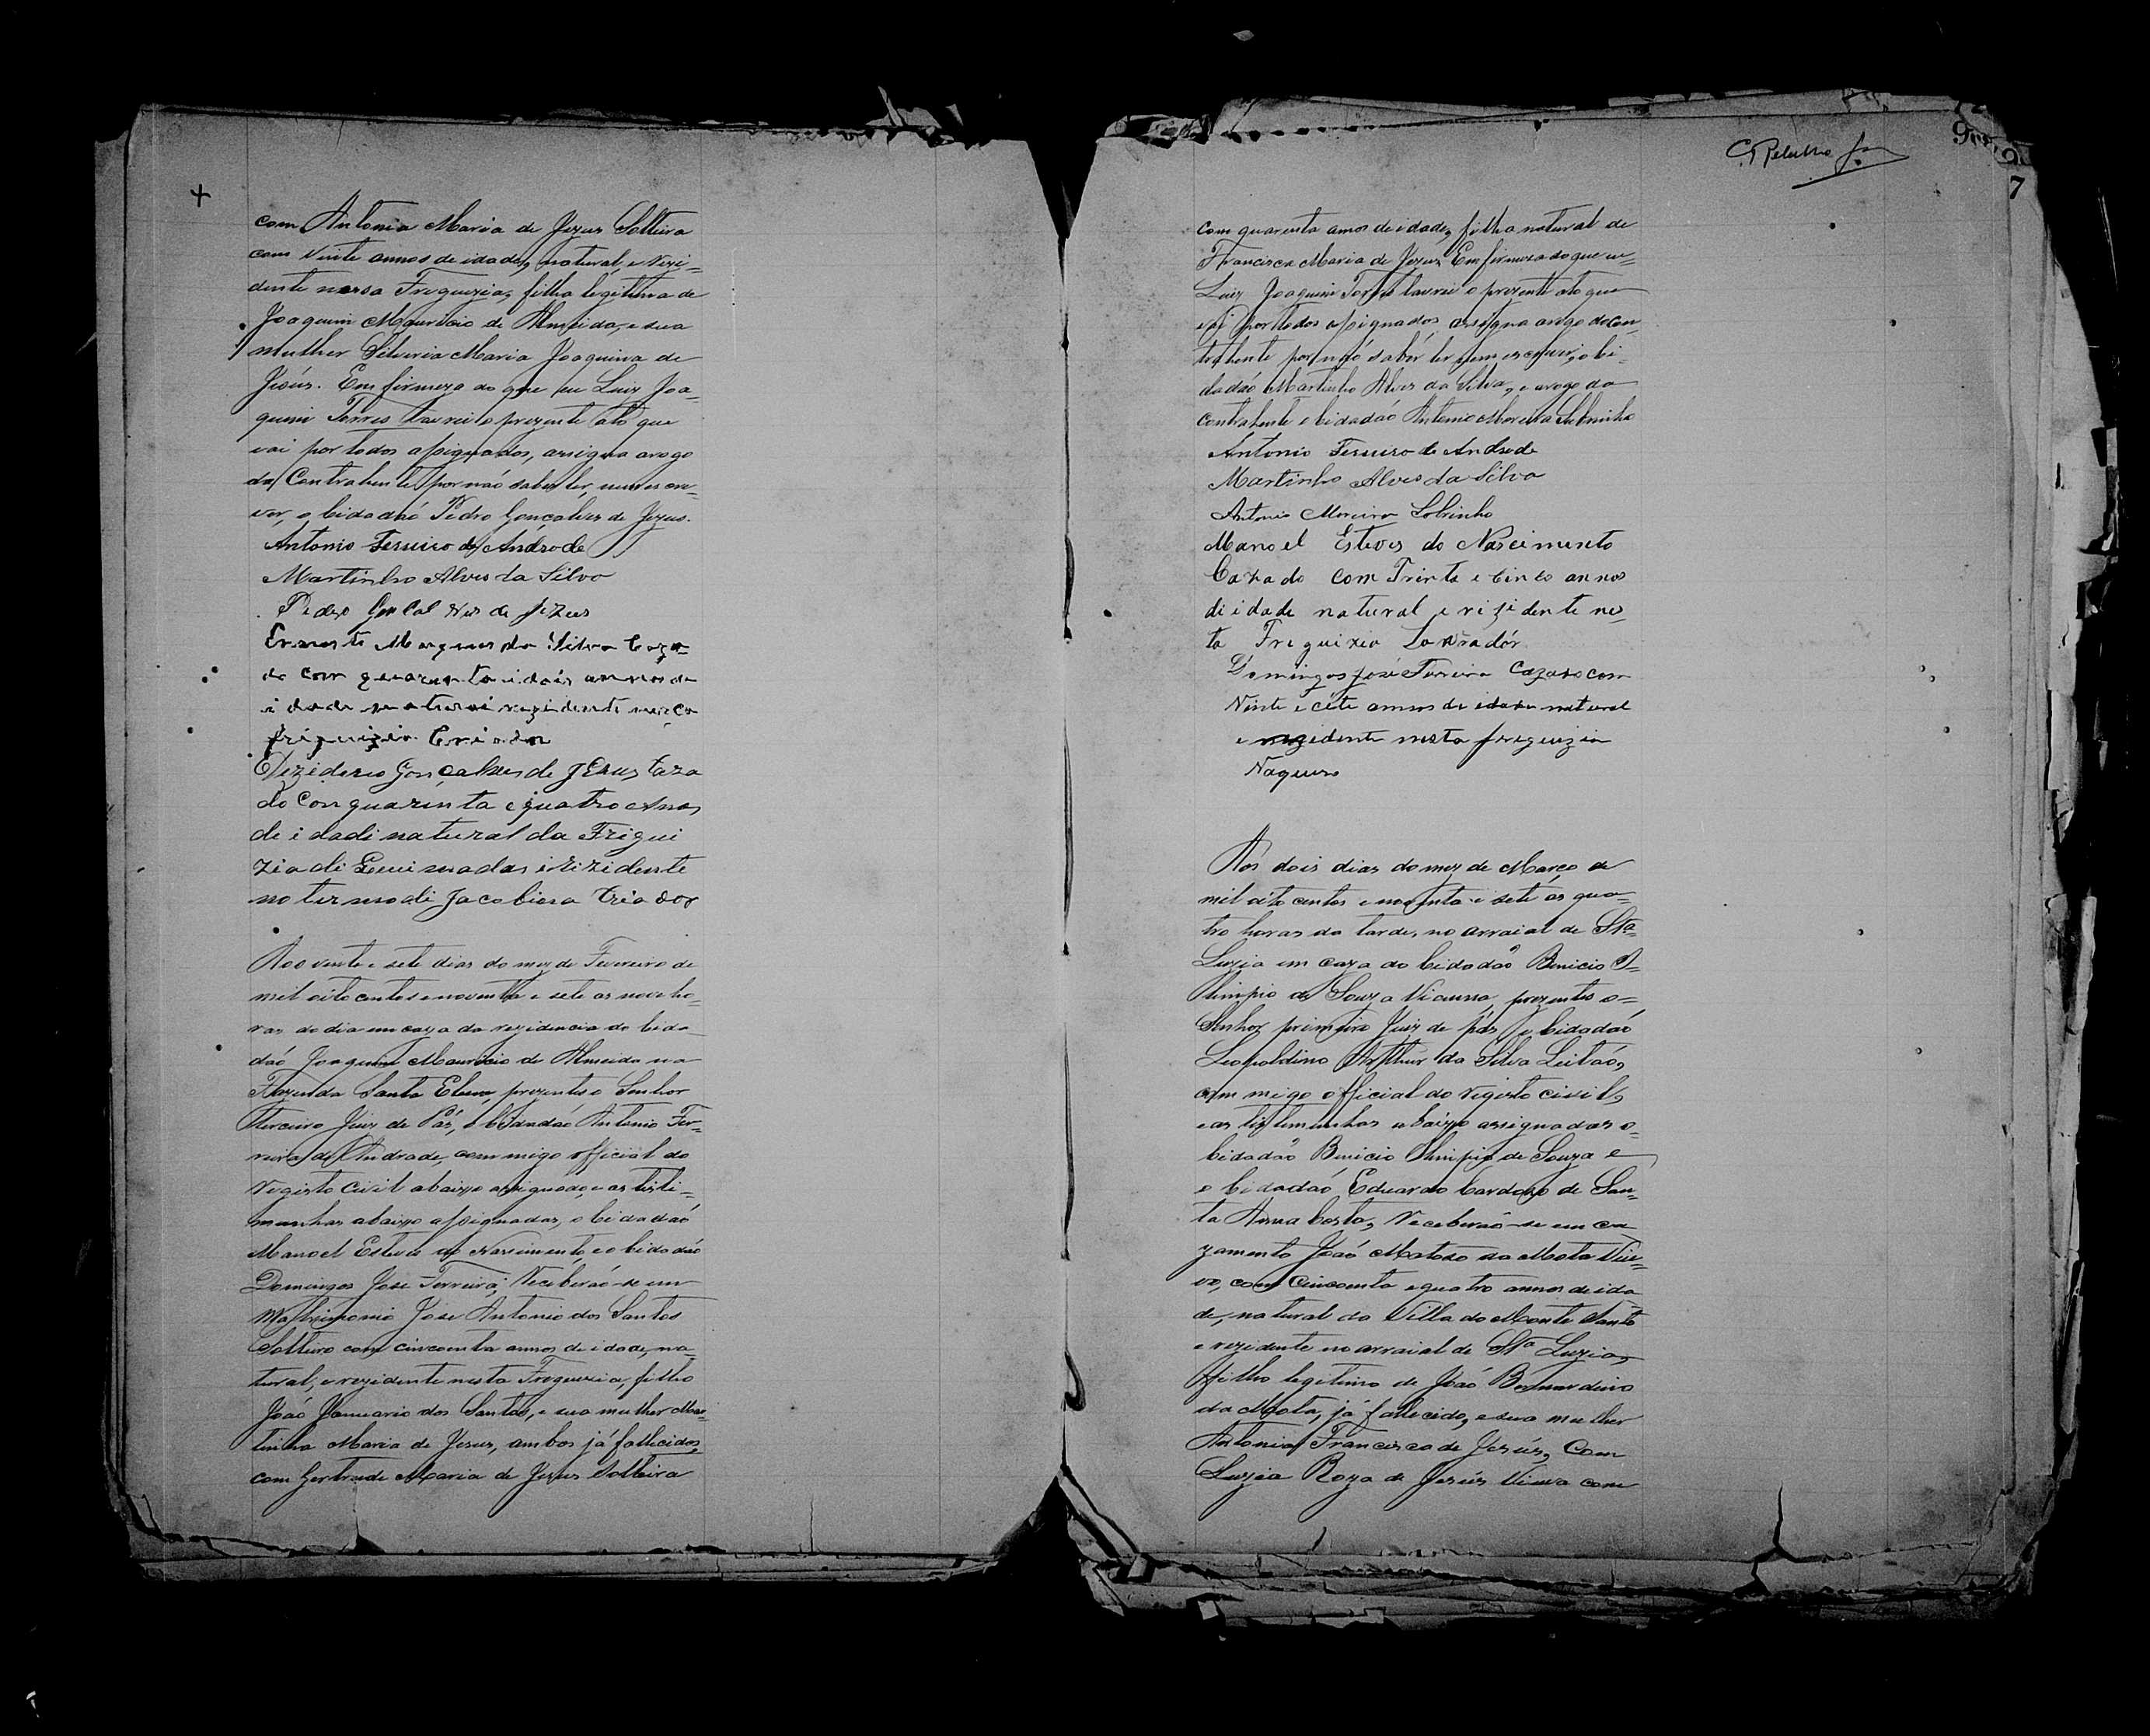 +
com Antonia Maria de Jezus Solteira
com vinte annos de idade, natural, e rezi-
dente nessa Freguezia, filha legitima de
Joaquim Mauricio de Almeida, e sua
mulher Silveria Maria Joaquina de
Jesús. Em firmeza do que eu Luiz Joa-
quim Torres lavrei o prezente ato que
vai por todos assignados, assigna arogo
da Contrahente por naó saber ler, nem escre-
ver, o Cidadaó Pedro Gonçalves de Jezus.
Antonio Ferreira de Andrade
Martinho Alves da Silva
Pedro Goncalves de Jezus
Ernesto Marques da Silva Caza-
do com quarenta i dois annos de
idade natural rezidente neça
friguizia Criador
Deziderio Gonçalves de JEzus Caza
do Con quarinta e quatro Annos
de idadi natural da Frigui
zia di Queimadas i Rizidente
no termo di Jacobina Criador
Aos vente e sete dias do mez de Fevereiro de
mil oito centos e noventa e sete as nove ho-
ras do dia em caza da rezidencia do Cida-
daó Joaquim Mauricio de Almeida na
Fazenda Santa Elena, prezentes o Senhor
terceiro Juiz de Páz, o Cidadaó Antonio Fer-
reira de Andrade, commigo official do
Registo Civil abaixo assignado, e as tisti-
munhas abaixo assignadas, o Cidadaó
Manoel Esteves do Nascimento, e o Cidadaó
Domingos Jose Ferreira; Receberaó-se em
Matrimonio Jose Antonio dos Santos
Solteiro com cincoenta annos de idade, na-
tural, e rezidente nesta Freguezia, filho
João Januario dos Santos, e sua mulher Mar-
tinha Maria de Jesus, ambos já fallecidos,
com Gertrude Maria de Jezus Solteira
7
com quarenta annos de idade, filha natural de
Francisca Maria de Jezus. Em firmeza do que eu
Luiz Joaquim Torres lavrei o prezente ato que
vai por todos assignados, assigna arogo do Con-
trahente por naó saber ler nem escrever, o Ci-
dadaó Martinho Alves da Silva, e arogo da
contrahente o Cidadaó Antonio Moreira Sobrinho
Antonio Ferreira de Andrade
Martinho Alves da Silva
Antonio Moreira Sobrinho
Manoel Esteves do Nascimento
Cazado com Trinta e Cinco annos
di idade natural e rizidente nes-
ta Friguizia Lavradór
Domingos José Ferreira Cazado com
Vinte e céte annos de idade natural
e rezidente nesta freiguizia
Vaqueiro
Aos dois dias do mez de Março de
mil oito centos e noventa e sete as qua-
tro horas da tarde, no arraial de Sta
Luzia em caza do Cidadaõ Binicio O-
limpio de Souza Vianna, prezentes o
Senhor primeiro Juiz de páz o Cidadaó
Leopoldino Arthur da Silva Leitaó,
commigo official do registo civil,
e as tistimunhas abaixo assignadas o
Cidadaõ Binicio Olimpio de Souza e
o Cidadaó Eduardo Cardozo de San-
ta Anna Costa, Receberaó-se em Ca
zamento Joaó Matoso da Mota Viu-
vo, com Cincoenta e quatro annos de ida
de, natural da Villa do Monte Santo
e rezidente no arraial de Sta Luzia,
filho legitimo de João Bernardino
da Mota, já fallecido, e sua mulher
Antonia Francisca de Jesús, Com
Luzia Roza de Jesús Viuva com